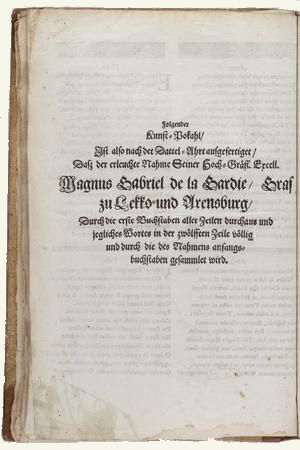 Folgender
Kunst-Pokahl/
Ist also nach der Dattel-Ahrt ausgefertiget/
Daß der erleuchte Nahme Seiner Hoch-Gräfl. Excell.
Magnus Gabriel de la Gardie/ Graf
zu Lekko und Arensburg/
Durch die erste Buchstaben aller Zeilen durchaus und
jegliches Wortes in der zwölfften Zeile völlig
und durch die des Nahmens anfangs-
buchstaben gesammlet wird.